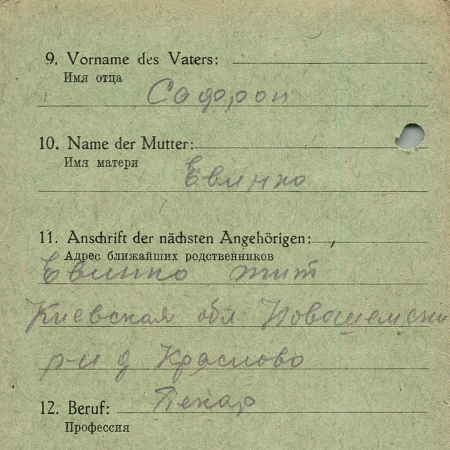 9. Vorname des Vaters:
Имя отца
Сафрон
10. Name der Mutter:
Имя матери
Евинко
11. Anschrift der nächsten Angehörigen:
Адрес ближайших родственников
Евинко
Киевская обл
р-н д Краслово
12. Beruf: Пекар
Профессия